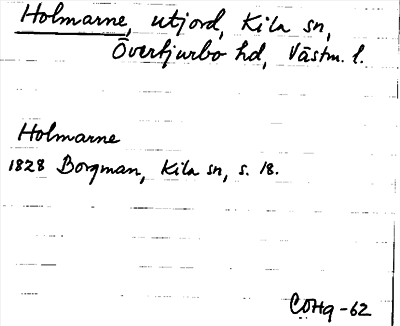 Holmarne, utjord, Kila sn,
Övertjurbo hd, Västm. l.
Holmarne
1828 Borgman, Kila sn, s. 18.
COHg-62